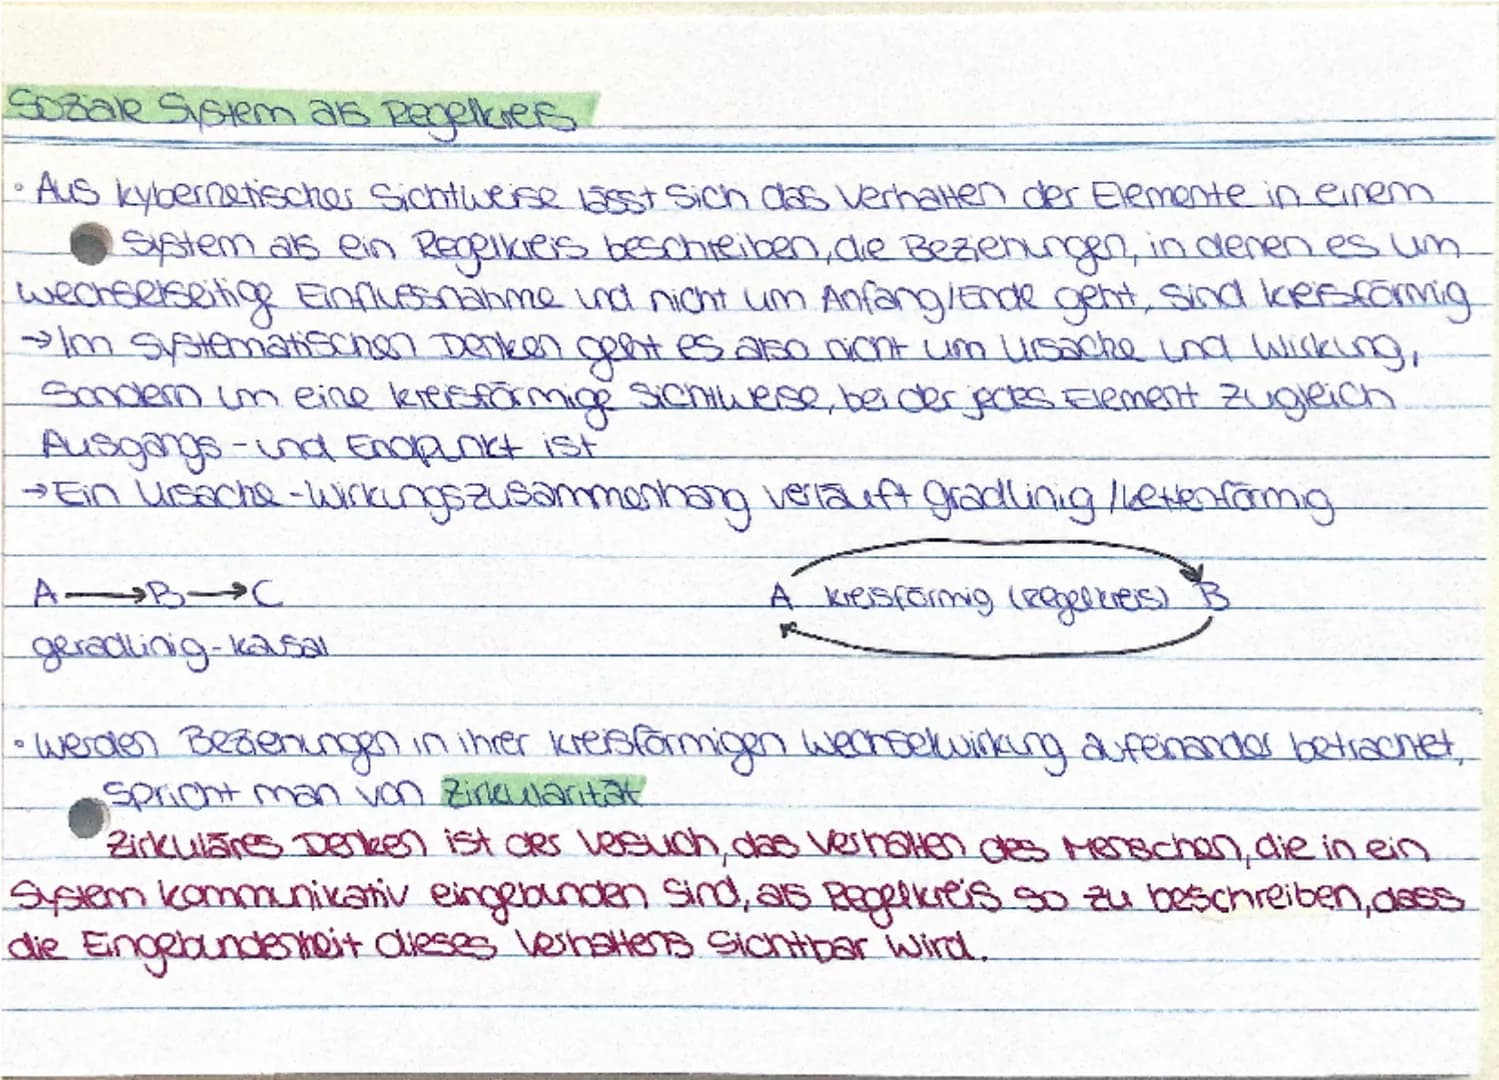 Soziale System als Regelkreis
• Aus kybernetischer Sichtweise lässt sich das Verhalten der Elemente in einem
System als ein Regelkreis beschreiben, die Beziehungen, in denen es um
wechselseitige Einflussnahme und nicht um Anfang/Ende geht, sind kreisförmig
→ Im systematischen Denken geht es also nicht um Ursache und Wirkung,
sondern um eine kreisförmige Sichtweise, bei der jedes Element zugleich
Ausgangs- und Endpunkt ist
→ Ein Ursache-Wirkungszusammenhang verläuft gradlinig/kettenförmig
A → B → C
A kreisförmig (Regelkreis) B
geradlinig-kausal
• Werden Beziehungen in ihrer kreisförmigen Wechselwirkung aufeinander betrachtet,
spricht man von Zirkularität
Zirkuläres Denken ist der Versuch, das Verhalten des Menschen, die in ein
System kommunikativ eingebunden sind, als Regelkreis so zu beschreiben, dass
die Eingebundenheit dieses Verhaltens sichtbar wird.